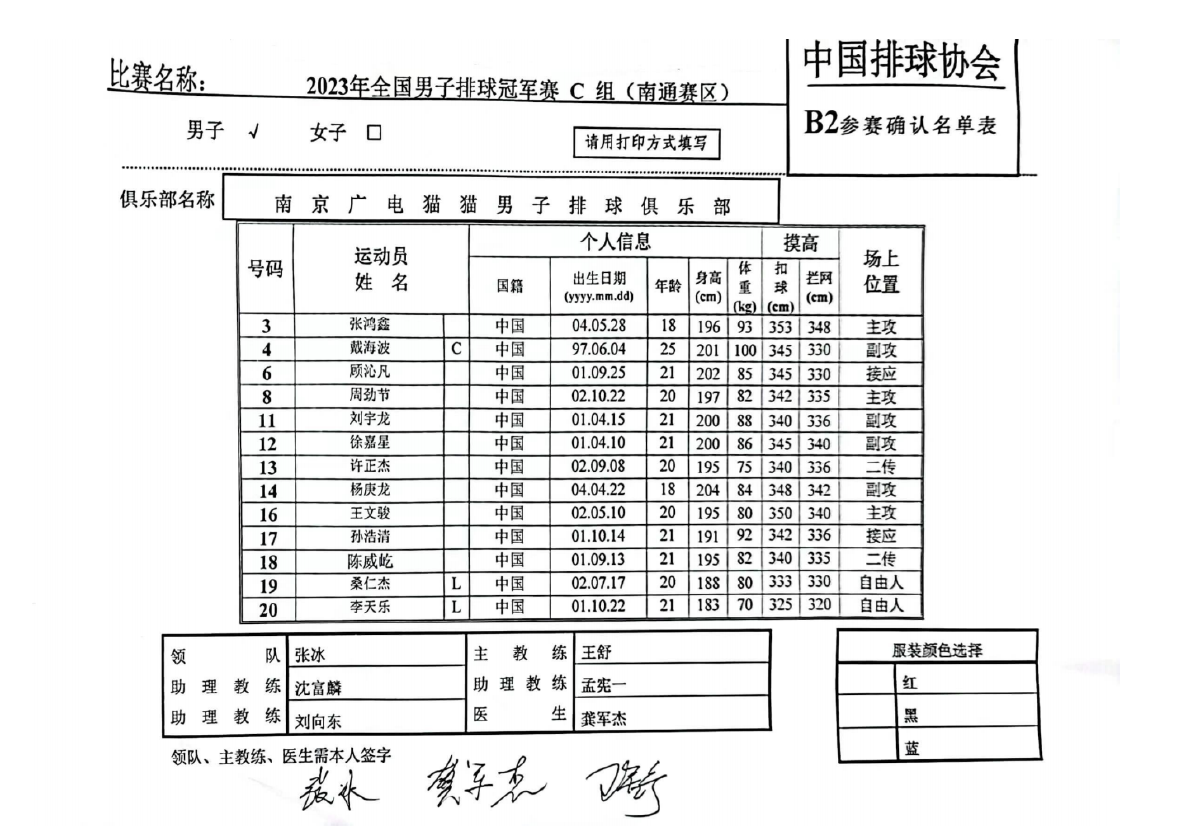 比赛名称： 2023年全国男子排球冠军赛 C 组（南通赛区）
中国排球协会
B2参赛确认名单表
男子 √ 女子 □
请用打印方式填写
俱乐部名称 南京广电猫猫男子排球俱乐部
号码 运动员姓名 个人信息 摸高 场上位置
国籍 出生日期(yyyy.mm.dd) 年龄 身高(cm) 体重(kg) 扣球(cm) 拦网(cm)
3 张鸿鑫 中国 04.05.28 18 196 93 353 348 主攻
4 戴海波 C 中国 97.06.04 25 201 100 345 330 副攻
6 顾沁凡 中国 01.09.25 21 202 85 345 330 接应
8 周劲节 中国 02.10.22 20 197 82 342 335 主攻
11 刘宇龙 中国 01.04.15 21 200 88 340 336 副攻
12 徐嘉星 中国 01.04.10 21 200 86 345 340 副攻
13 许正杰 中国 02.09.08 20 195 75 340 336 二传
14 杨庚龙 中国 04.04.22 18 204 84 348 342 副攻
16 王文骏 中国 02.05.10 20 195 80 350 340 主攻
17 孙浩清 中国 01.10.14 21 191 92 342 336 接应
18 陈威屹 中国 01.09.13 21 195 82 340 335 二传
19 桑仁杰 L 中国 02.07.17 20 188 80 333 330 自由人
20 李天乐 L 中国 01.10.22 21 183 70 325 320 自由人
领队 张冰 主教练 王舒
助理教练 沈富麟 助理教练 孟宪一
助理教练 刘向东 医生 龚军杰
服装颜色选择
红
黑
蓝
领队、主教练、医生需本人签字
张冰 龚军杰 王舒